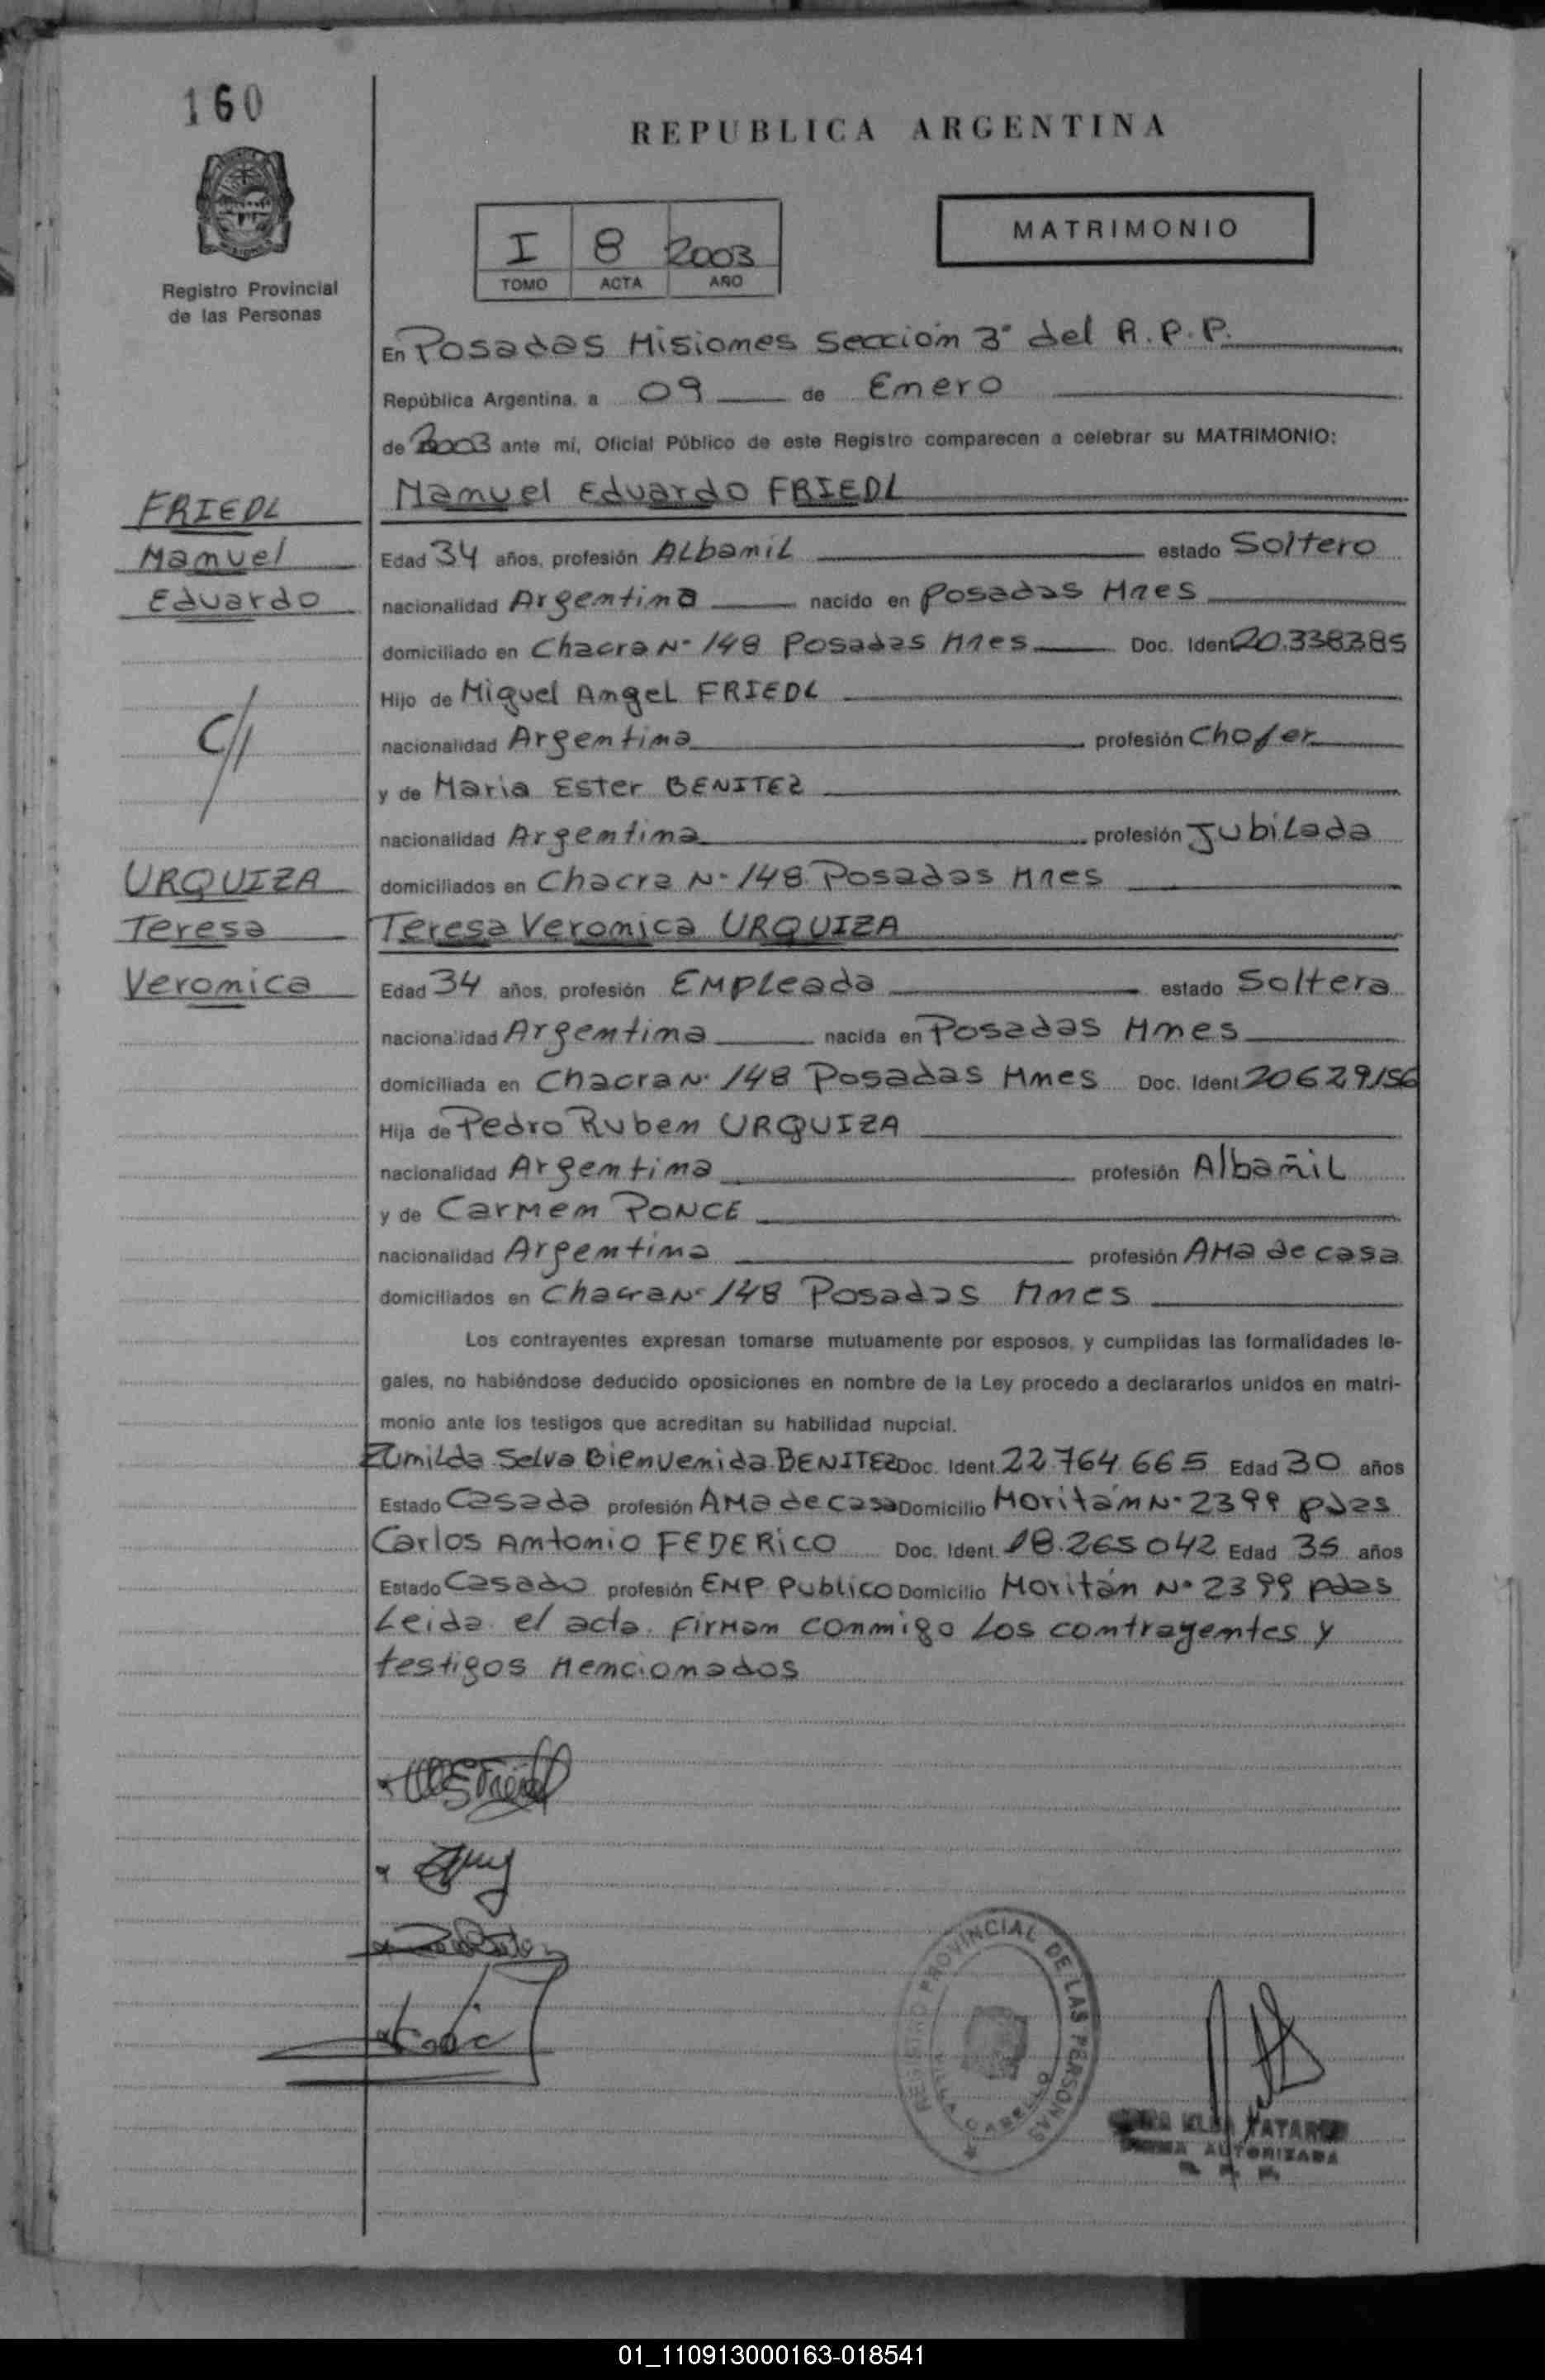 160
REPUBLICA ARGENTINA
I 8 2003
TOMO ACTA AÑO
MATRIMONIO
Registro Provincial
de las Personas
En Posadas Misiones Sección 3° del R.P.P.
República Argentina, a 09 de Enero
de 2003 ante mí, Oficial Público de este Registro comparecen a celebrar su MATRIMONIO:
Manuel Eduardo FRIEDL
FRIEDL
Manuel
Eduardo
Edad 34 años, profesión ALbamiL estado Soltero
nacionalidad Argentina nacido en Posadas Mnes
domiciliado en Chacra N° 148 Posadas Mnes Doc. Ident 20.338385
Hijo de Miguel AngeL FRIEDL
nacionalidad Argentina profesión Chofer
y de Maria Ester BENITEZ
nacionalidad Argentina profesión JubiLada
domiciliados en Chacra N° 148 Posadas Mnes
C/1
URQUIZA
Teresa
Veronica
Teresa Veronica URQUIZA
Edad 34 años, profesión EMPLeada estado Soltera
nacionalidad Argentina nacida en Posadas Mnes
domiciliada en Chacra N° 148 Posadas Mnes Doc. Ident 20629156
Hija de Pedro Ruben URQUIZA
nacionalidad Argentina profesión AlbañiL
y de Carmen PONCE
nacionalidad Argentina profesión AMa de casa
domiciliados en Chacra N° 148 Posadas Mnes
Los contrayentes expresan tomarse mutuamente por esposos, y cumplidas las formalidades le-
gales, no habiéndose deducido oposiciones en nombre de la Ley procedo a declararlos unidos en matri-
monio ante los testigos que acreditan su habilidad nupcial.
ZumiLda Selva Bienvenida BENITEZ Doc. Ident. 22.764.665 Edad 30 años
Estado Casada profesión AMa de casa Domicilio Moritán N° 2399 pdas
Carlos Antonio FEDERICO Doc. Ident. 18.265042 Edad 35 años
Estado Casado profesión EMP. PubLico Domicilio Moritán N° 2399 pdas
Leida el acta firman conmigo Los contrayentes y
testigos mencionados
REGISTRO PROVINCIAL DE LAS PERSONAS
AUTORIZADA
01_110913000163-018541